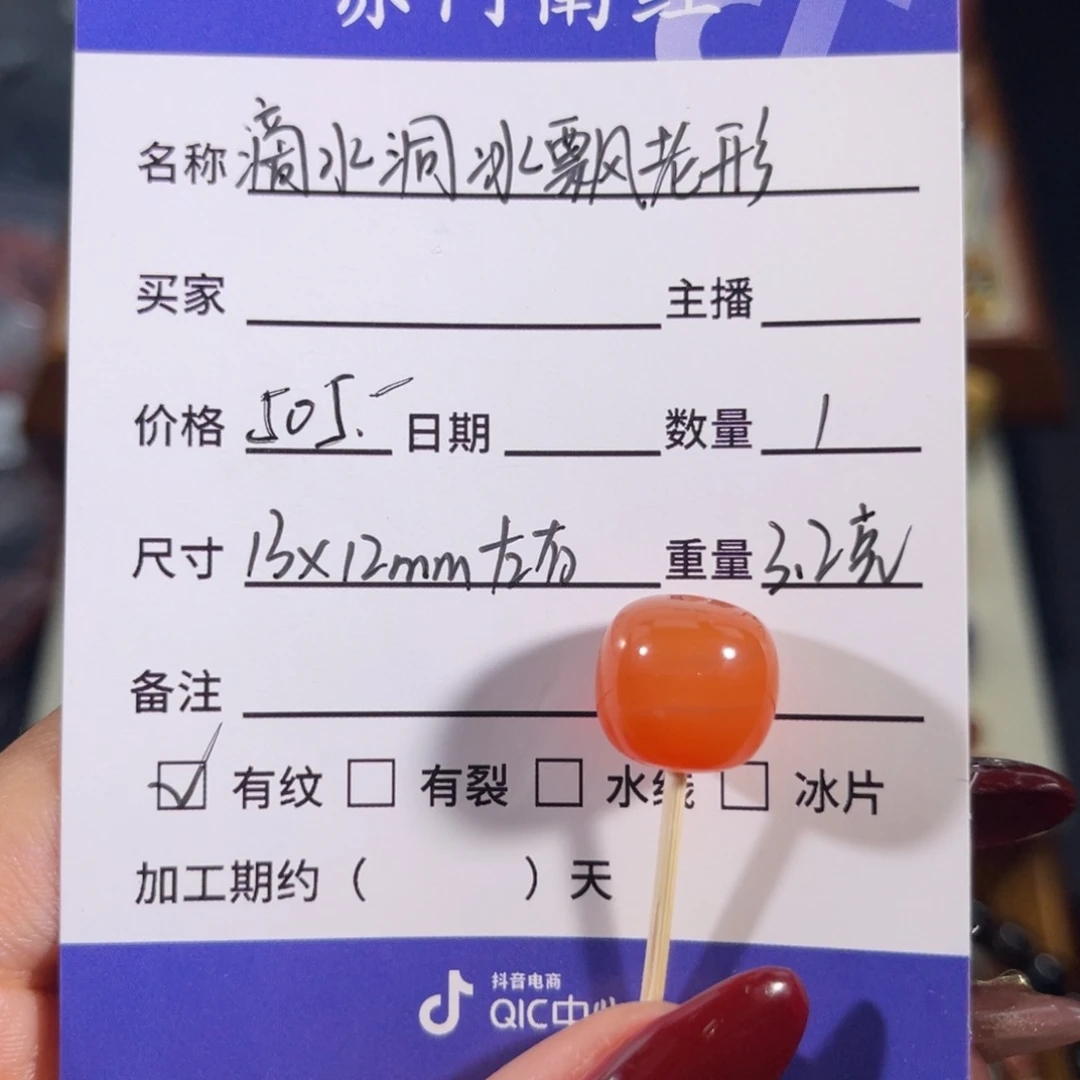 名称 滴水洞冰飘老形
买家 主播
价格 505.- 日期 数量 1
尺寸 13×12mm左右 重量 3.2克
备注
☑ 有纹 □ 有裂 □ 水线 □ 冰片
加工期约（ ）天
抖音电商
QIC中心